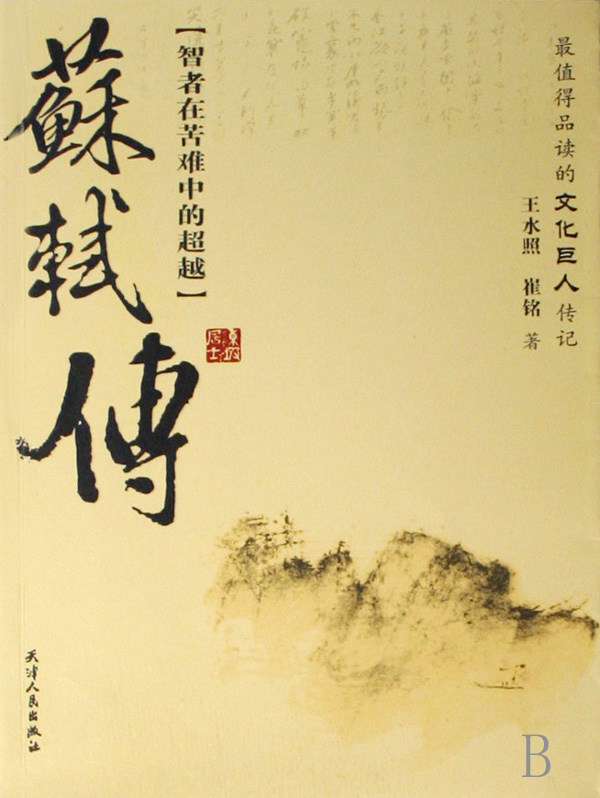 最值得品读的文化巨人传记
王水照 崔铭 著
【智者在苦难中的超越】
蘇軾傳
東坡居士
天津人民出版社
B